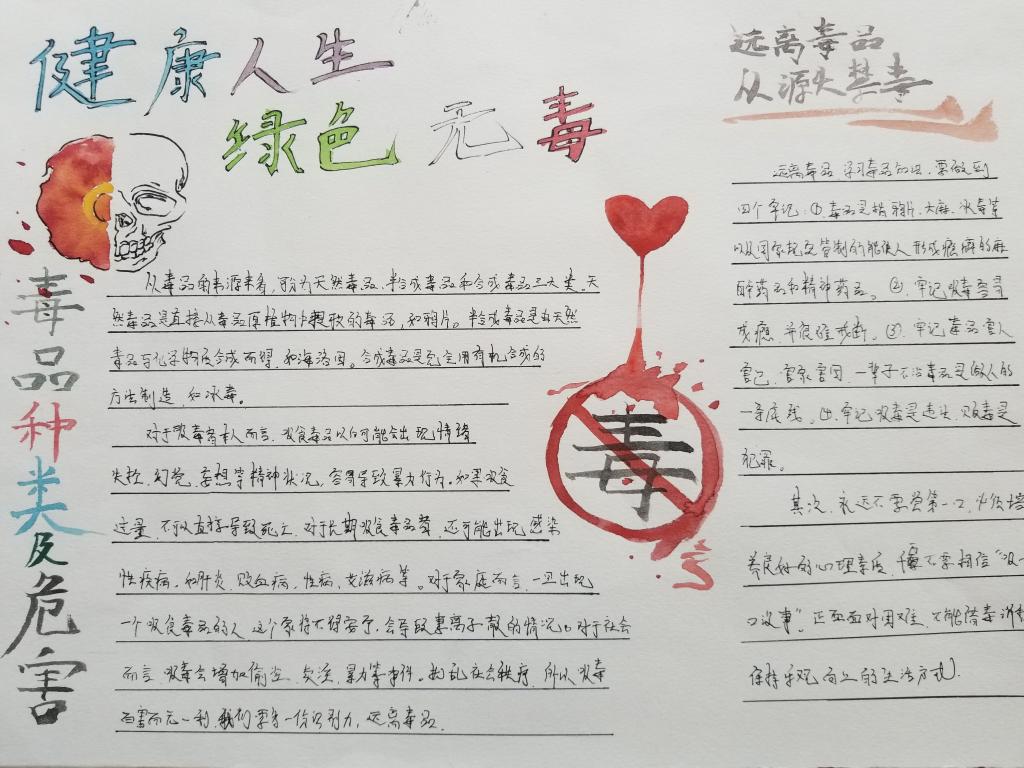 健康人生
绿色无毒
远离毒品
从源头禁毒
毒品种类及危害
从毒品的来源来看,可分为天然毒品、半合成毒品和合成毒品三大类。天
然毒品是直接从毒品原植物中提取的毒品,如鸦片。半合成毒品是由天然
毒品与化学物质合成而得,如海洛因。合成毒品是完全用有机合成的
方法制造,如冰毒。
对于吸毒者本人而言,吸食毒品以后可能会出现情绪
失控、幻觉、妄想等精神状况,容易导致暴力行为。如果吸食
过量,不可以直接导致死亡,对于长期吸食毒品等,还可能出现感染
性疾病,如肝炎、败血病、性病、艾滋病等。对于家庭而言,一旦出现
一个吸食毒品的人,这个家将不得安宁,会导致妻离子散的情况。对于社会
而言,吸毒会增加偷盗、贪污、暴力等事件。扰乱社会秩序,所以吸毒
百害而无一利,我们要多一份识别力,远离毒品。
毒
远离毒品 学习毒品知识,要做到
四个牢记:①毒品是指鸦片、大麻、冰毒等
以及国家规定管制的能使人形成瘾癖的麻
醉药品和精神药品。②,牢记吸毒容易
成瘾,并很难戒断。③,牢记毒品害人
害己,害家害国,一辈子不沾毒品是做人的
一条底线。④,牢记吸毒是违法,贩毒是
犯罪。
其次,永远不要尝第一口,必须培
养良好的心理素质,千万不要相信“吸一
口没事”,正面面对困难,不能借毒消愁
保持乐观向上的生活方式。